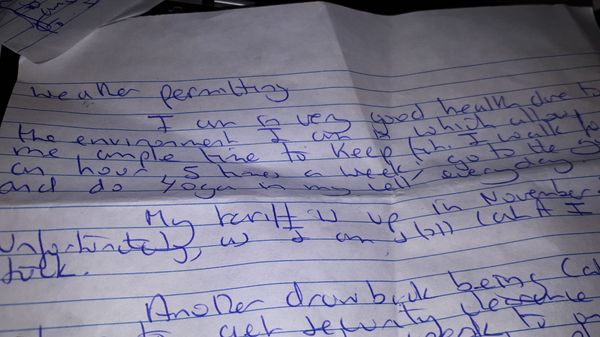 weather permitting
I am in very good health due to
the environment I am in which allows
me ample time to keep fit. I walk for
an hour 5 times a week, go to the gym
and do yoga in my cell everyday
My is up in November.
Unfortunately, as I am still Cat A I
Another drawback being Cat
get security clearance
to